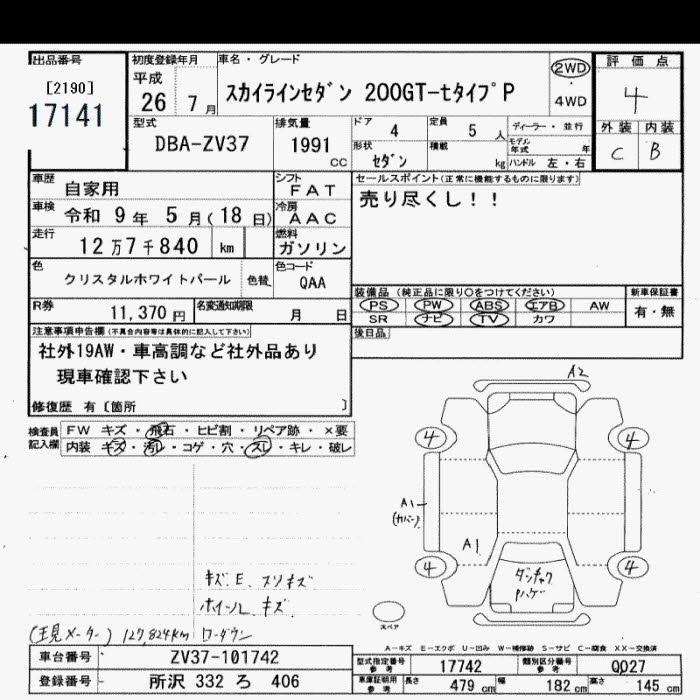 出品番号 初度登録年月 車名・グレード 評価点
[2190] 平成 2WD
17141 26 7月 スカイラインセダン 200GT-tタイプP ・ 4
4WD
型式 排気量 ドア 4 定員 5人 ディーラー・並行 外装 内装
DBA-ZV37 1991 cc 形状 セダン 積載 kg モデル年式 年 C B
ハンドル 左・右
車歴 自家用 シフト FAT セールスポイント(正常に機能するものに限ります)
車検 令和 9年 5月(18日) 冷房 AAC 売り尽くし!!
走行 12万7千840 km 燃料 ガソリン
色 クリスタルホワイトパール 色替 色コード QAA
装備品 (純正品に限り〇をつけてください) 新車保証書
R券 11,370円 名変通知期限 月 日 PS PW ABS エアB AW 有・無
SR ナビ TV カワ
注意事項申告欄(不具合内容等は具体的に記入して下さい) 後日品
社外19AW・車高調など社外品あり
現車確認下さい
修復歴 有〔箇所 〕
検査員 FW キズ・飛石・ヒビ割・リペア跡・×要
記入欄 内装 キズ・汚レ・コゲ・穴・スレ・キレ・破レ
A2
4 4
A1
(カバー)
A1
4 4
キズ、E、スリキズ
ホイール キズ
スペア
127,824km
A-キズ E-エクボ U-凹み W-補修跡 S-サビ C-腐食 XX-交換済
車台番号 ZV37-101742 型式指定番号 参考 17742 類別区分番号 参考 0027
登録番号 所沢 332 ろ 406 車庫証明用 参考 長さ 479 cm 幅 182 cm 高さ 145 cm